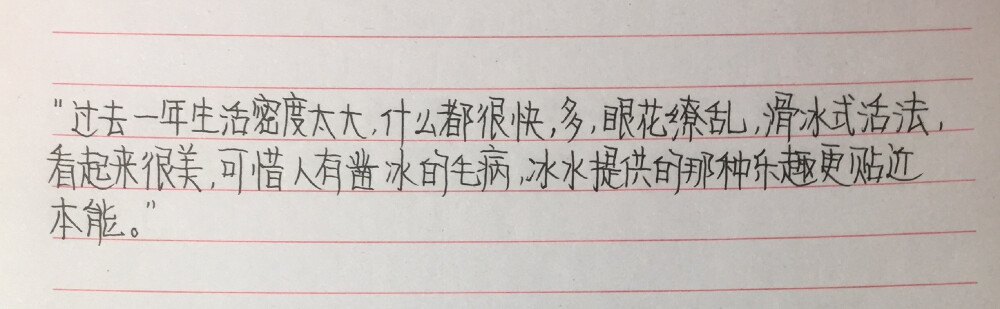 "过去一年生活密度太大,什么都很快,多,眼花缭乱,滑冰式活法,
看起来很美,可惜人有凿冰的毛病,冰水提供的那种乐趣更贴近
本能。"